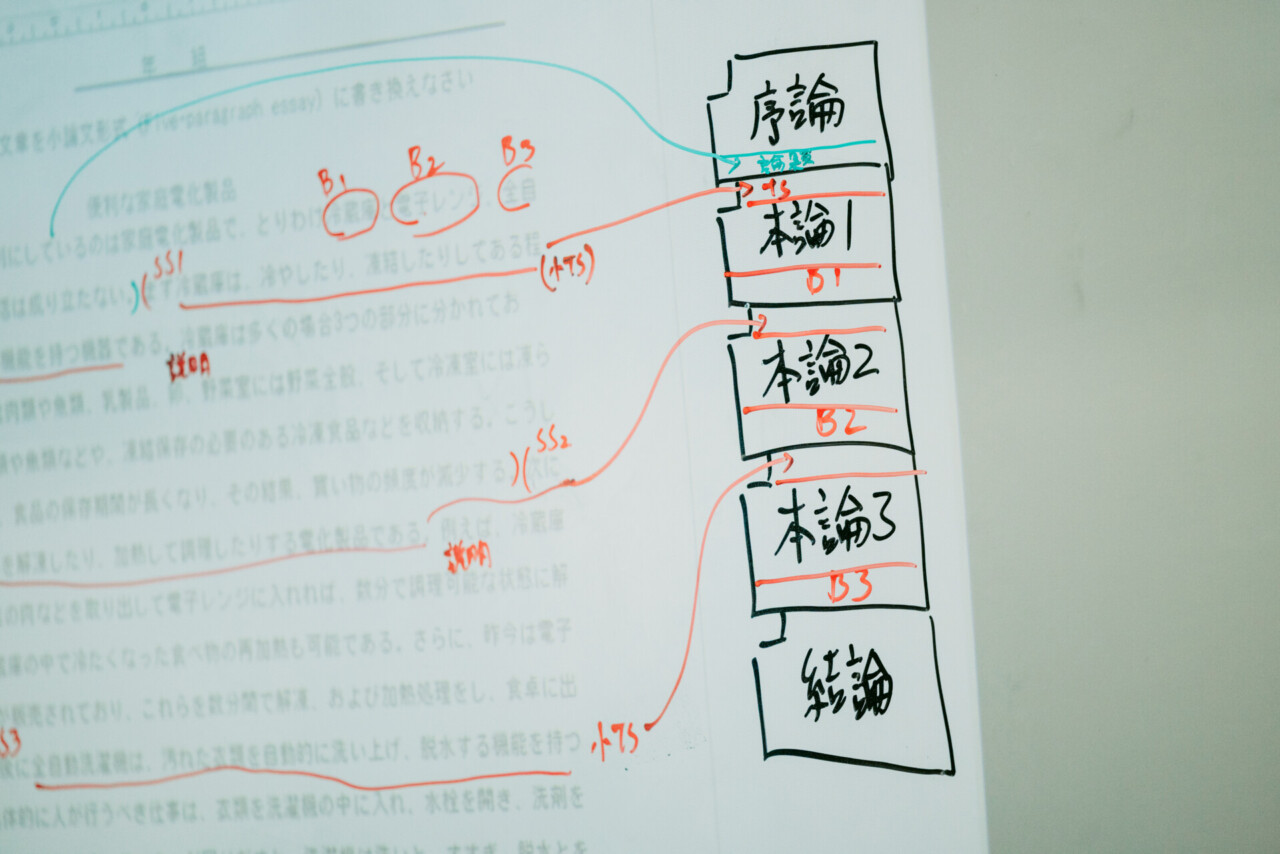 年 組
文章を小論文形式 (Five-paragraph essay) に書き換えなさい
B1 B2 B3
便利な家庭電化製品
にしているのは家庭電化製品で、とりわけ冷蔵庫と電子レンジ、全自
は成り立たない。)(SS1 まず冷蔵庫は、冷やしたり、凍結したりしてある程
(小TS)
機能を持つ機器である。冷蔵庫は多くの場合3つの部分に分かれてお
説明
は肉類や魚類、乳製品、卵、野菜室には野菜全般、そして冷凍室には凍ら
類や魚類などや、凍結保存の必要のある冷凍食品などを収納する。こうし
、食品の保存期間が長くなり、その結果、買い物の頻度が減少する。)(SS2 次に
を解凍したり、加熱して調理したりする電化製品である。例えば、冷蔵庫
説明
の肉などを取り出して電子レンジに入れれば、数分で調理可能な状態に解
蔵庫の中で冷たくなった食べ物の再加熱も可能である。さらに、昨今は電子
が販売されており、これらを数分間で解凍、および加熱処理をし、食卓に出
SS3
後に全自動洗濯機は、汚れた衣類を自動的に洗い上げ、脱水する機能を持つ
小TS
体的に人が行うべき仕事は、衣類を洗濯機の中に入れ、水栓を開き、洗剤を
序論
論題
TS
本論1
B1
本論2
B2
本論3
B3
結論